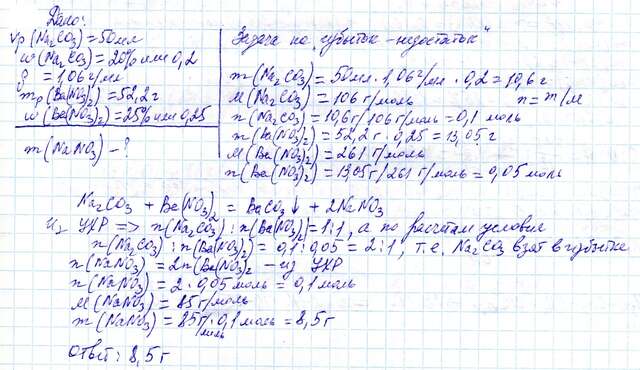 Дано:
Vр(Na₂CO₃)=50мл
w(Na₂CO₃)=20% или 0,2
ρ = 1,06 г/мл
mр(Ba(NO₃)₂)=52,2г
w(Ba(NO₃)₂)=25% или 0,25
m(NaNO₃)-?
Задача по „избыток-недостаток"
m(Na₂CO₃)=50мл·1,06г/мл·0,2=10,6г
M(Na₂CO₃)=106г/моль n=m/M
n(Na₂CO₃)=10,6г/106г/моль=0,1 моль
m(Ba(NO₃)₂)=52,2г·0,25=13,05г
M(Ba(NO₃)₂)=261 г/моль
n(Ba(NO₃)₂)=13,05г/261 г/моль=0,05 моль
Na₂CO₃ + Ba(NO₃)₂ = BaCO₃↓ + 2NaNO₃
Из УХР => n(Na₂CO₃):n(Ba(NO₃)₂)=1:1, а по расчётам условия
n(Na₂CO₃):n(Ba(NO₃)₂)=0,1:0,05=2:1, т.е. Na₂CO₃ взят в избытке
n(NaNO₃)=2n(Ba(NO₃)₂ - из УХР
n(NaNO₃)=2·0,05моль=0,1моль
M(NaNO₃)=85г/моль
m(NaNO₃)=85г/моль·0,1моль=8,5г
Ответ: 8,5г